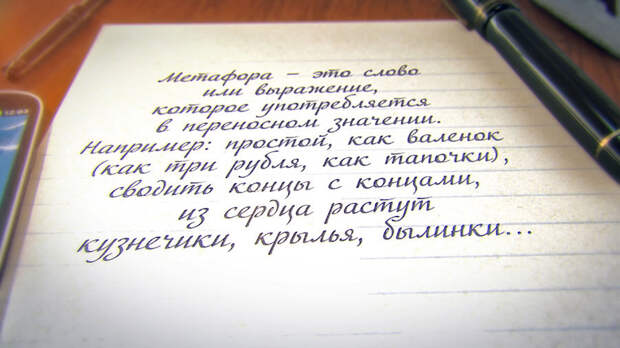 Метафора – это слово
или выражение,
которое употребляется
в переносном значении.
Например: простой, как валенок
(как три рубля, как тапочки),
сводить концы с концами,
из сердца растут
кузнечики, крылья, былинки...